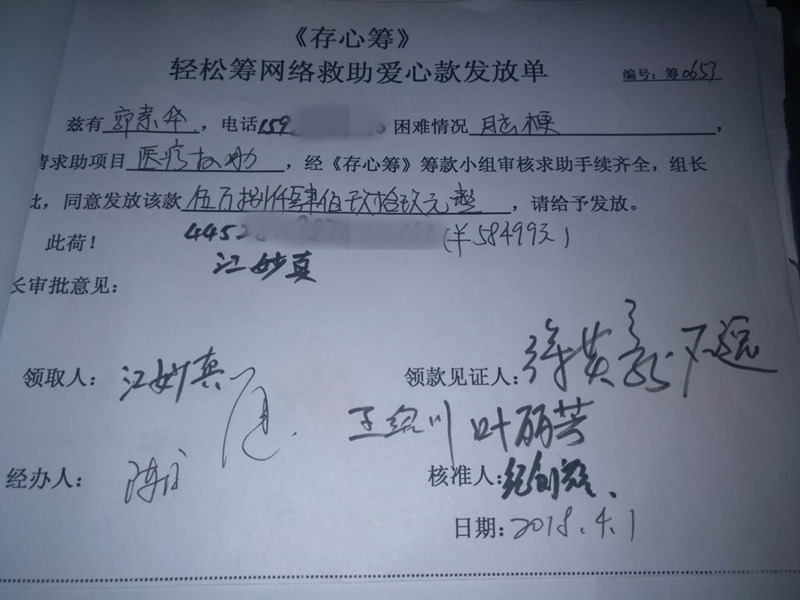 《存心筹》
轻松筹网络救助爱心款发放单
编号：筹0653
兹有郭素华，电话159 困难情况 脑梗，
请求助项目医疗救助，经《存心筹》筹款小组审核求助手续齐全，组长
比，同意发放该款伍万捌仟肆佰玖拾玖元整，请给予发放。
此荷！ 4452 (￥58499元)
江妙真
长审批意见：
领取人：江妙真 领款见证人：
叶丽芳
经办人： 核准人：
日期：2018.4.1